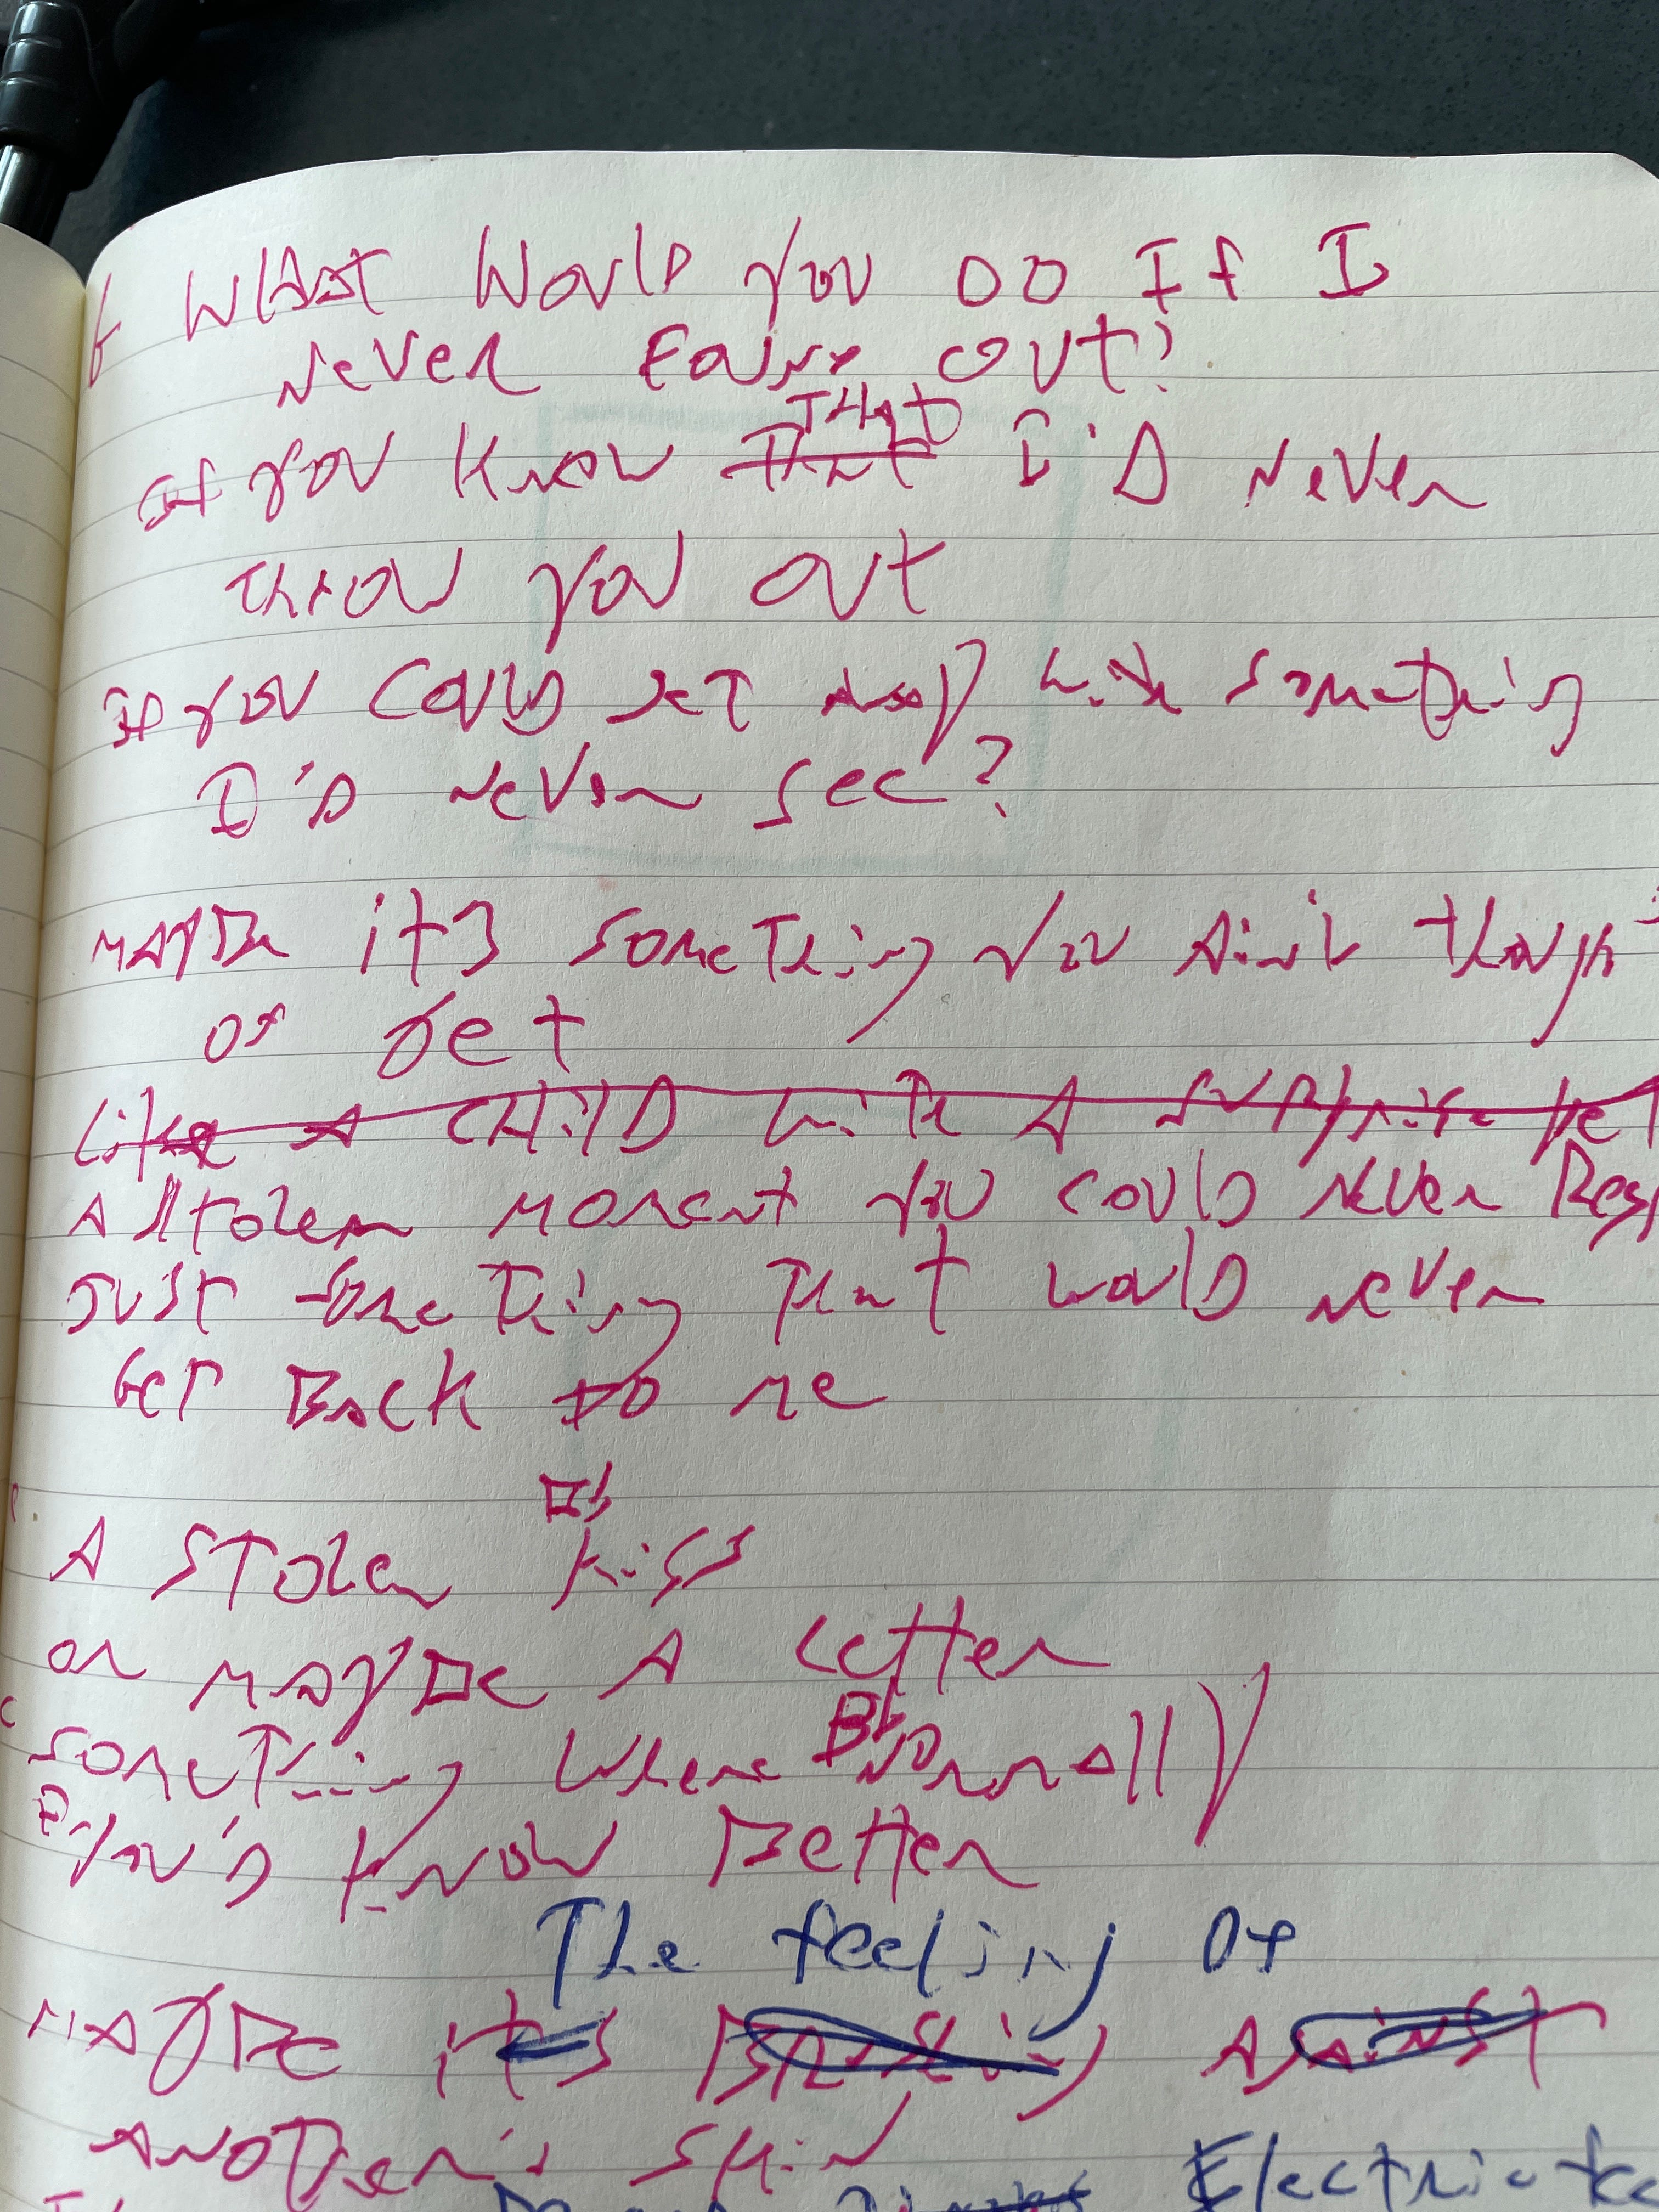 What Would you DO If I
never Found out?
THAT
If you Know That I'D never
throw you out
If you Could get away with something
I'D never see?
maybe it's something you Ain't
of yet
Like A CHilD with A surprise
A Stolen moment you could never
Just something That would never
Get Back to me
A STolen Kiss
or maybe A Letter
Something Where Normally
you'D know Better
The feeling Of
MAyBe it's Brushing Against
ANOTher's Skin